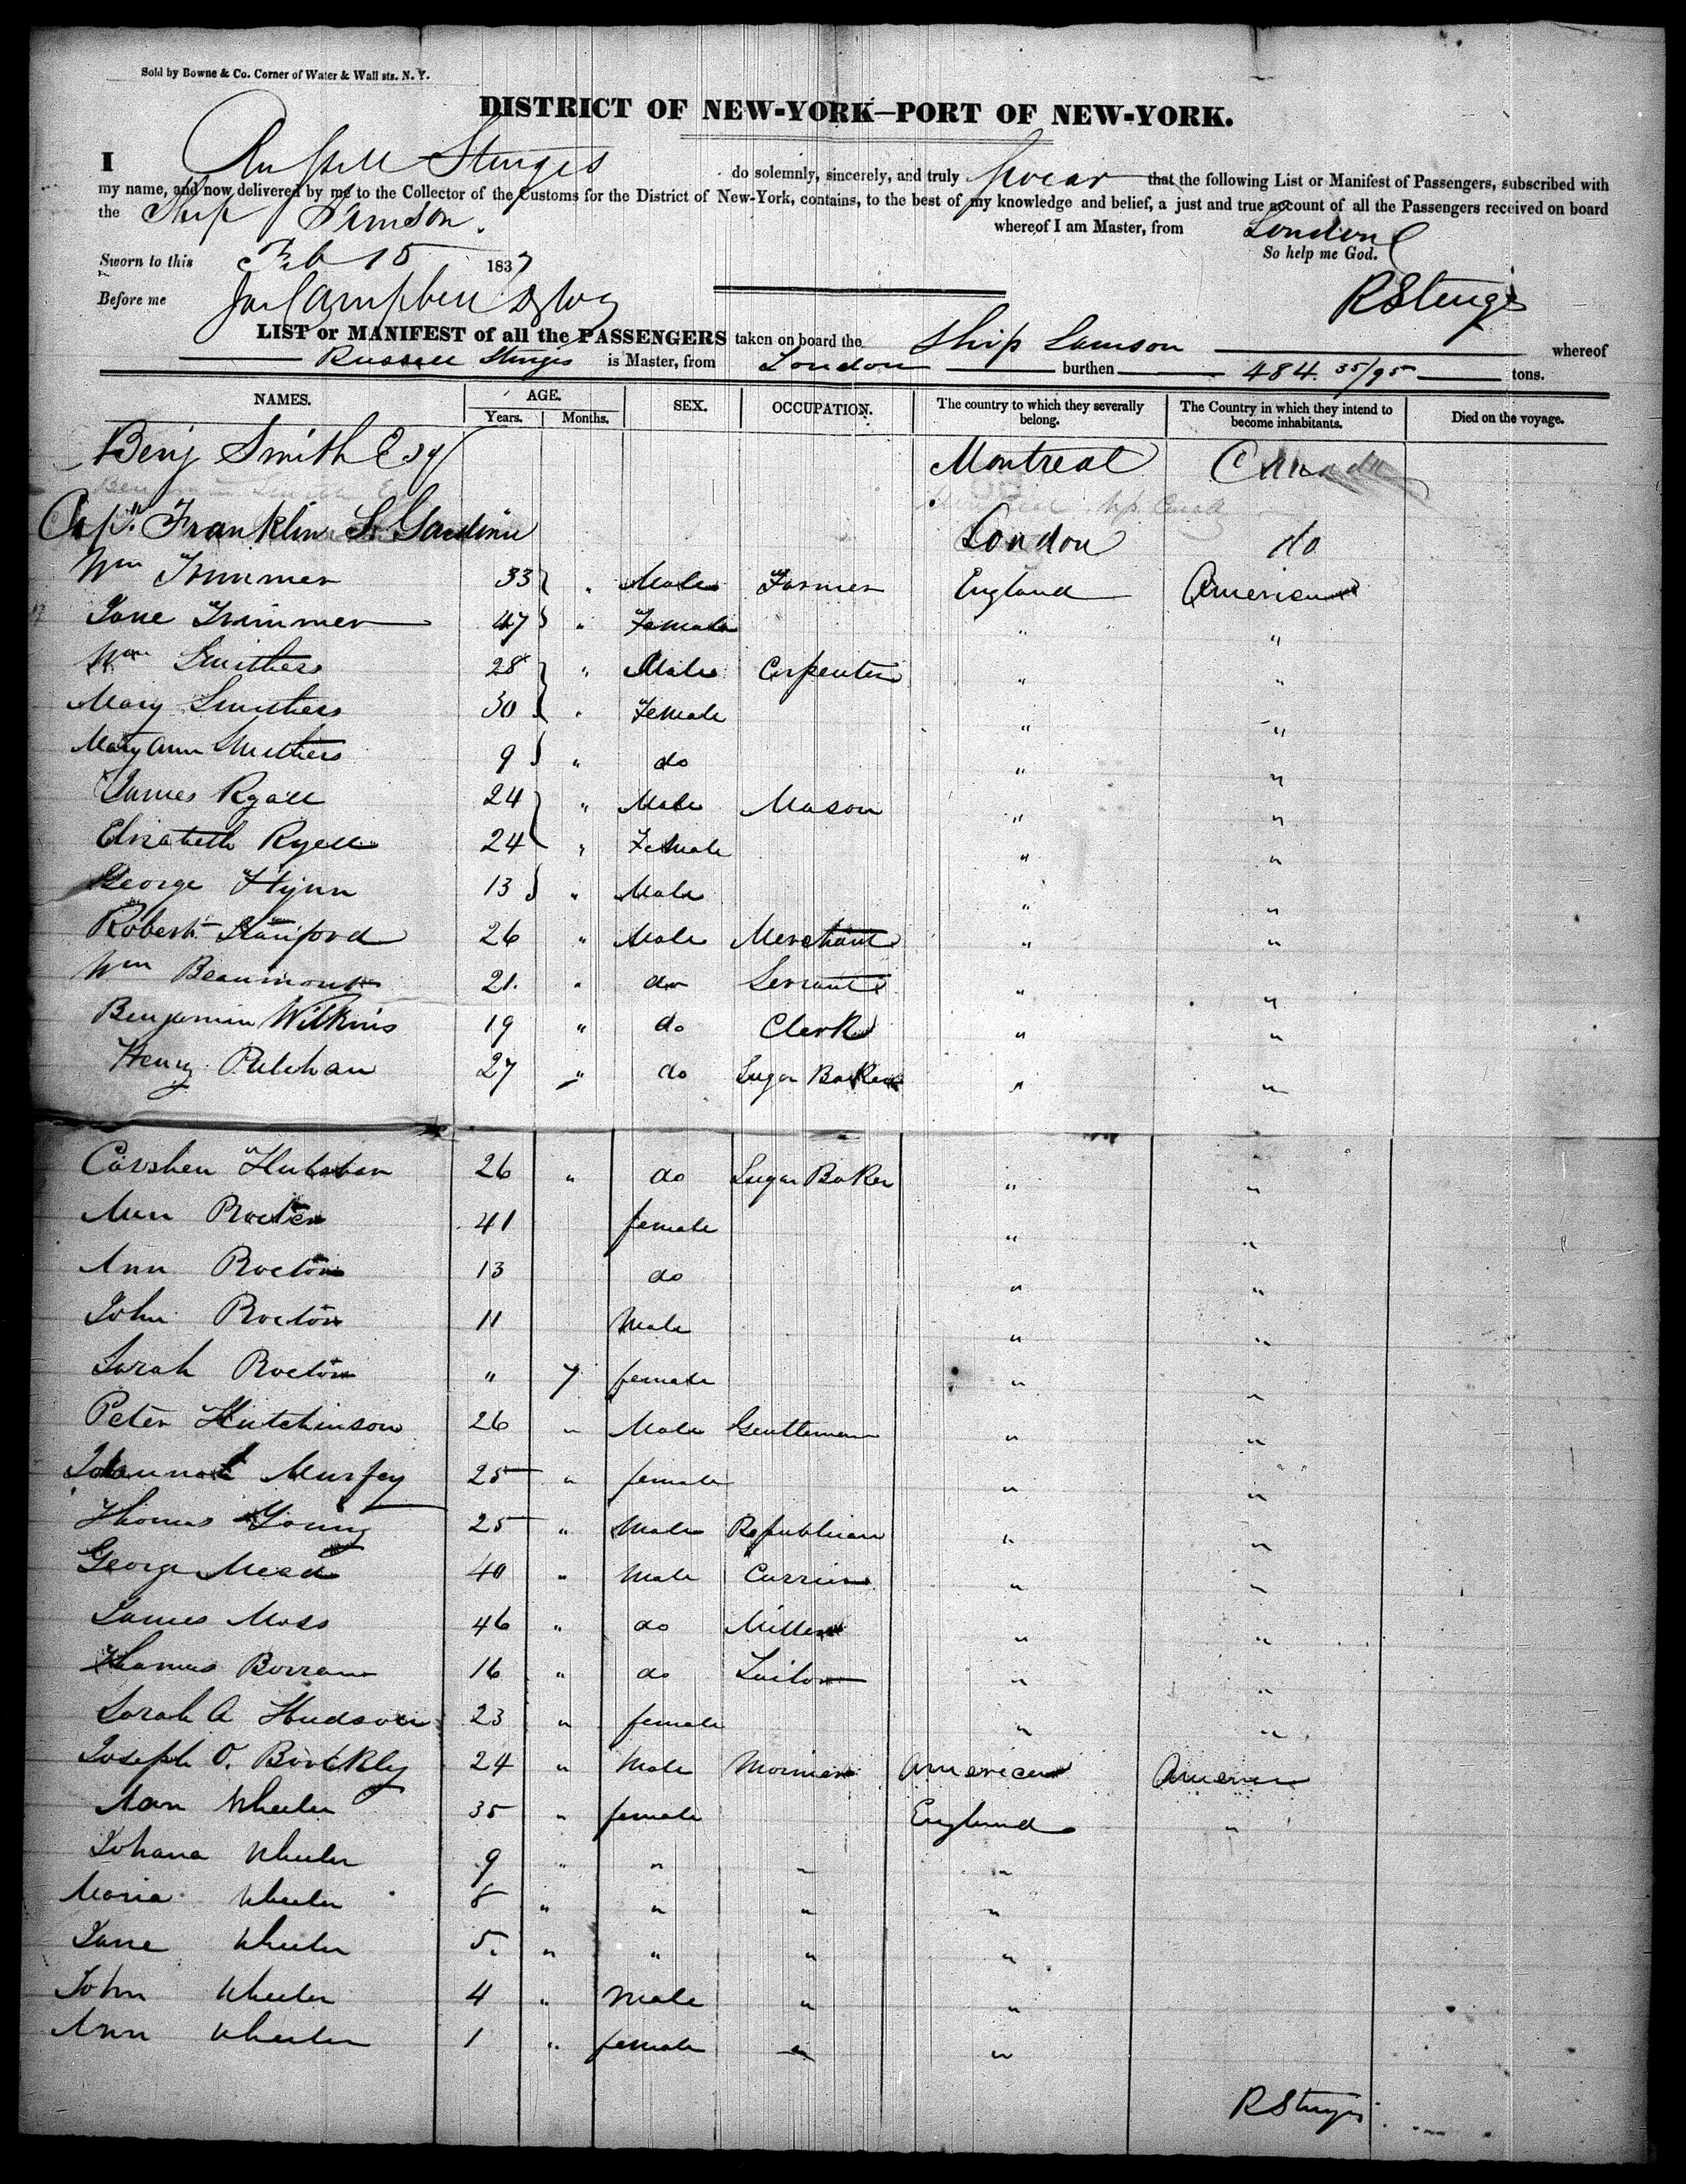 Sold by Bowne & Co. Corner of Water & Wall sts. N. Y.
DISTRICT OF NEW-YORK—PORT OF NEW-YORK.
I Russell Sturges do solemnly, sincerely, and truly swear that the following List or Manifest of Passengers, subscribed with
my name, and now delivered by me to the Collector of the Customs for the District of New-York, contains, to the best of my knowledge and belief, a just and true account of all the Passengers received on board
the Ship Samson. whereof I am Master, from London
So help me God.
Sworn to this Feb 15 1837
Before me Campbell R Sturges
LIST or MANIFEST of all the PASSENGERS taken on board the Ship Samson whereof
Russell Sturges is Master, from London burthen 484. 35/95 tons.
NAMES. AGE. SEX. OCCUPATION. The country to which they severally belong. The Country in which they intend to become inhabitants. Died on the voyage.
Years. Months.
Benj Smith Esq Montreal Canada
Capt. Franklin S. Gardiner London do
Wm Trimmer 33 " Male Farmer England America
Jane Trimmer 47 " Female " "
Wm Smithers 28 " Male Carpenter " "
Mary Smithers 30 " Female " "
Mary Ann Smithers 9 " do " "
James Ryall 24 " Male Mason " "
Elizabeth Ryall 24 " Female " "
George Flynn 13 " Male " "
Robert Staniford 26 " Male Merchant " "
Wm Beaumont 21. " do Servant " "
Benjamin Wilkins 19 " do Clerk " "
Henry 27 " do Sugar Baker " "
26 " do Sugar Baker " "
Ann Rocton 41 female " "
Ann Rocton 13 do " "
John Rocton 11 Male " "
Sarah Rocton " 7 female " "
Peter Hutchinson 26 " Male Gentleman " "
Murfey 25 " female " "
Thomas Young 25 " Male Republican " "
George Mead 40 " Male Currier " "
James Moss 46 " do Miller " "
Thomas 16 " do Tailor " "
Sarah A Hudson 23 " female " "
Joseph O. 24 " Male Mariner America America
Ann Wheeler 35 " female England "
Johana Wheeler 9 " " " "
Maria Wheeler 8 " " " "
Jane Wheeler 5. " " " "
John Wheeler 4 " Male " "
Ann Wheeler 1 " female " "
R Sturges